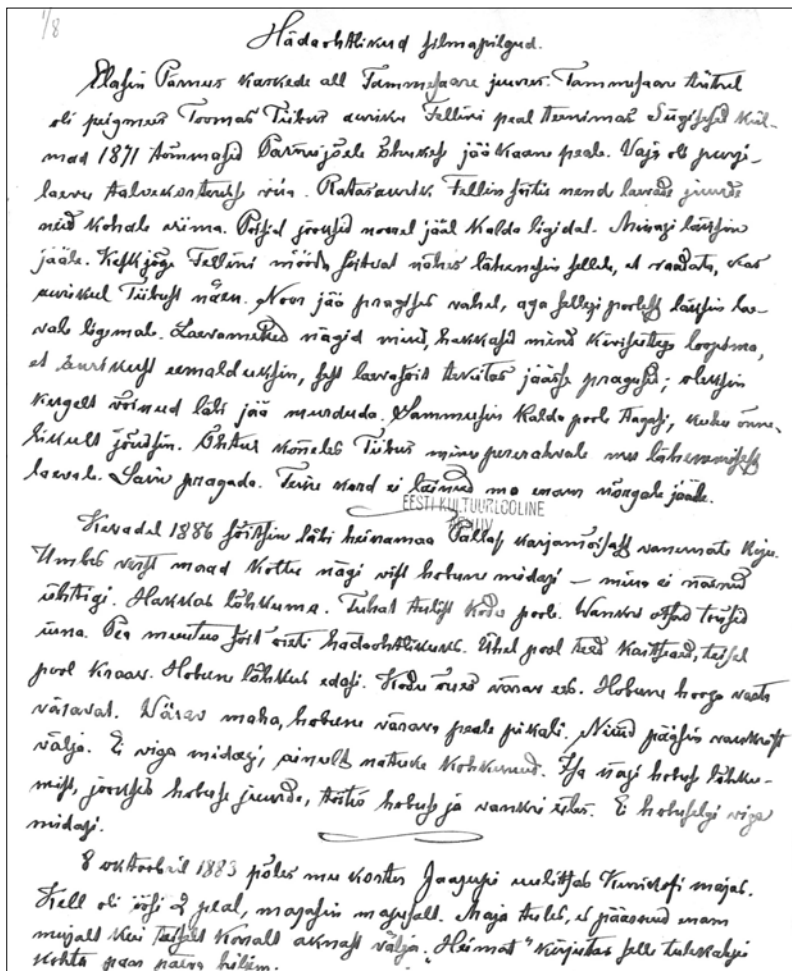 1/8
Hädaohtlikud silmapilgud.
Elasin Pärnus kaskede all Tammesaare juures. Tammesaare tütrel
oli peigmees Toomas Tiibus auriku Fellini peal teenimas. Sügisesed kül-
mad 1871 tõmmasid Pärnu jõele õhukese jääkaane peale. Vaja oli purje-
laevu talvekorterisse viia. Ratasaurik Fellin sõitis nende laevade juurde
neid kohale viima. Poisid jooksid noorel jääl kalda ligidal. Minagi läksin
jääle. Keskjõge Fellini mööda sõitvat nähes lähenesin sellele, et vaadata, kas
aurikul Tiibust näen. Noor jää pragises vahel, aga sellegi pärast läksin lae-
vale ligemale. Laevamehed nägid mind, hakkasid mind kivisütega loopima,
et aurikust eemalduksin, sest laevasõit tekitas jäässe pragusid; oleksin
kergelt võinud läbi jää murduda. Sammusin kalda poole tagasi, kuhu õnne-
likult jõudsin. Õhtul kõneles Tiibus minu pererahvale mu lähenemisest
laevale. Sain pragada. Teine kord ei läinud ma enam nõrgale jääle.
EESTI KULTUURLOOLINE
ARHIIV
Kevadel 1886 sõitsin läbi heinamaa Pallas karjamõisast vanemate koju.
Umbes verst maad kottu nägi vist hobune midagi — mina ei näinud
ühtigi. Hakkas lõhkuma. Tuhat tulist kodu poole. Wankri otsad tõusid
üuna. Pea muutus sõit õieti hädaohtlikuks. Ühel pool teed kartsaed, teisel
pool kraav. Hobune lõhkus edasi. Kodu õues värav ees. Hobune hooga vasta
väravat. Wärav maha, hobune värava peale pikali. Nüüd pääsin vankrist
välja. Ei viga midagi, ainult natuke kohkunud. Isa nägi hobuse lõhku-
mist, jooksis hobuse juurde, tõstis hobuse ja vankri üles. Ei hobuselgi viga
midagi.
8 oktoobril 1883 põles mu korter Jaagupi uulitsas Kuriskofi majas.
Kell oli öösi 2 peal, magasin magusalt. Maja tules, ei pääsenud enam
mujalt kui teiselt korralt aknast välja. "Heimat" kirjutas selle tulekahju
kohta paar päeva hiljem.